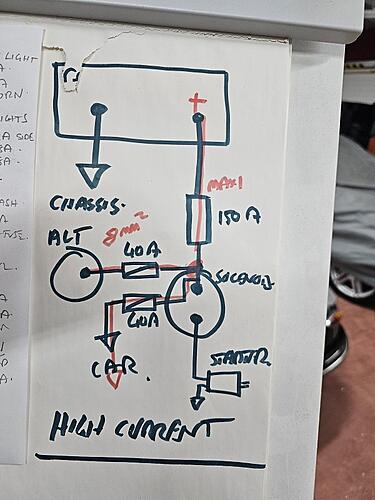 LIGHT
A.
A
ORN.
IGHTS
A SIDE
A.
ASH
+
MAXI
150 A
CHASSIS.
8mm²
ALT
40A
SOLENOID
40A
CAR.
STARTER
HIGH CURRENT